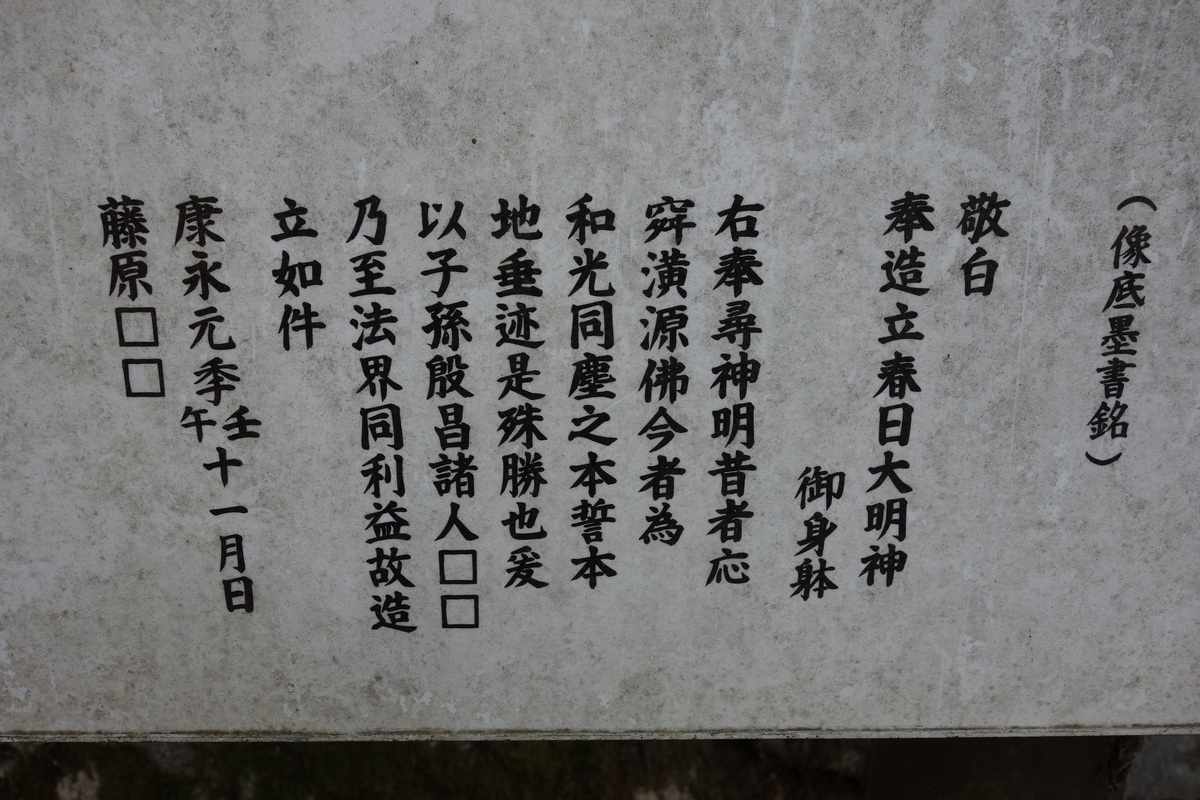 （像底墨書銘）
敬白
奉造立春日大明神
御身躰
右奉尋神明昔者応
窂潢源佛今者為
和光同塵之本誓本
地垂迹是殊勝也爰
以子孫殷昌諸人□□
乃至法界同利益故造
立如件
康永元季壬午十一月日
藤原□□